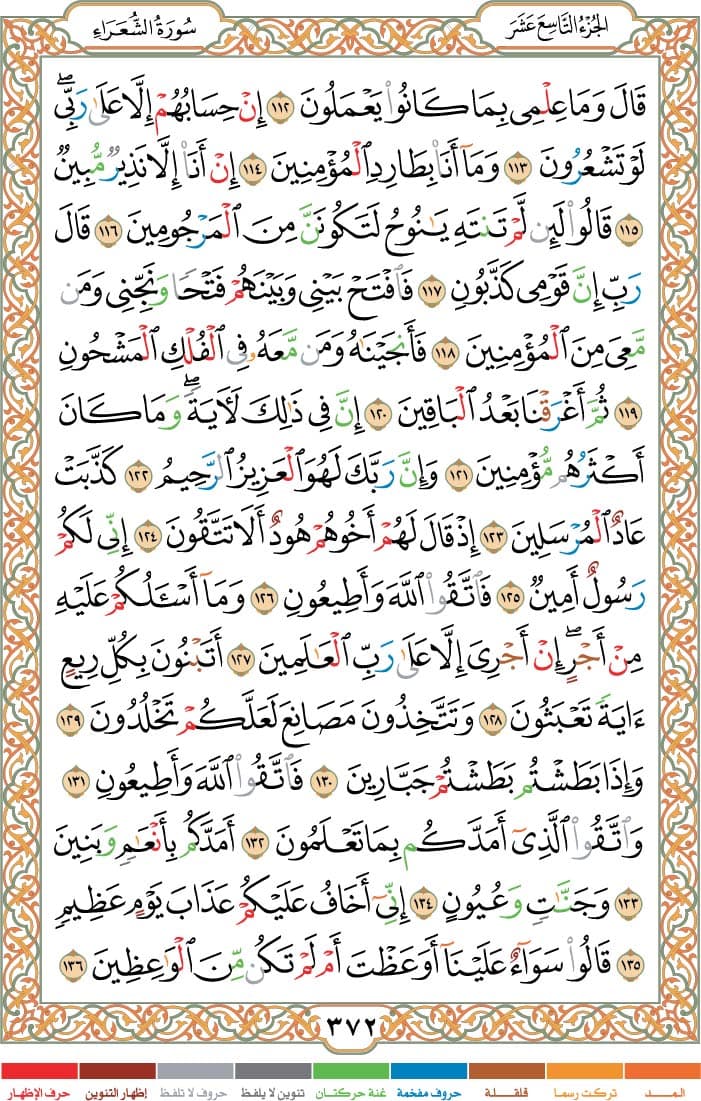 الجزء التاسع عشر
سورة الشعراء
قَالَ وَمَا عِلْمِى بِمَا كَانُوا۟ يَعْمَلُونَ ١١٢ إِنْ حِسَابُهُمْ إِلَّا عَلَىٰ رَبِّى ۖ
لَوْ تَشْعُرُونَ ١١٣ وَمَآ أَنَا۠ بِطَارِدِ ٱلْمُؤْمِنِينَ ١١٤ إِنْ أَنَا۠ إِلَّا نَذِيرٌ مُّبِينٌ
١١٥ قَالُوا۟ لَئِن لَّمْ تَنتَهِ يَـٰنُوحُ لَتَكُونَنَّ مِنَ ٱلْمَرْجُومِينَ ١١٦ قَالَ
رَبِّ إِنَّ قَوْمِى كَذَّبُونِ ١١٧ فَٱفْتَحْ بَيْنِى وَبَيْنَهُمْ فَتْحًا وَنَجِّنِى وَمَن
مَّعِىَ مِنَ ٱلْمُؤْمِنِينَ ١١٨ فَأَنجَيْنَـٰهُ وَمَن مَّعَهُۥ فِى ٱلْفُلْكِ ٱلْمَشْحُونِ
١١٩ ثُمَّ أَغْرَقْنَا بَعْدُ ٱلْبَاقِينَ ١٢٠ إِنَّ فِى ذَٰلِكَ لَـَٔايَةً ۖ وَمَا كَانَ
أَكْثَرُهُم مُّؤْمِنِينَ ١٢١ وَإِنَّ رَبَّكَ لَهُوَ ٱلْعَزِيزُ ٱلرَّحِيمُ ١٢٢ كَذَّبَتْ
عَادٌ ٱلْمُرْسَلِينَ ١٢٣ إِذْ قَالَ لَهُمْ أَخُوهُمْ هُودٌ أَلَا تَتَّقُونَ ١٢٤ إِنِّى لَكُمْ
رَسُولٌ أَمِينٌ ١٢٥ فَٱتَّقُوا۟ ٱللَّهَ وَأَطِيعُونِ ١٢٦ وَمَآ أَسْـَٔلُكُمْ عَلَيْهِ
مِنْ أَجْرٍ ۖ إِنْ أَجْرِىَ إِلَّا عَلَىٰ رَبِّ ٱلْعَـٰلَمِينَ ١٢٧ أَتَبْنُونَ بِكُلِّ رِيعٍ
ءَايَةً تَعْبَثُونَ ١٢٨ وَتَتَّخِذُونَ مَصَانِعَ لَعَلَّكُمْ تَخْلُدُونَ ١٢٩
وَإِذَا بَطَشْتُم بَطَشْتُمْ جَبَّارِينَ ١٣٠ فَٱتَّقُوا۟ ٱللَّهَ وَأَطِيعُونِ ١٣١
وَٱتَّقُوا۟ ٱلَّذِىٓ أَمَدَّكُم بِمَا تَعْلَمُونَ ١٣٢ أَمَدَّكُم بِأَنْعَـٰمٍ وَبَنِينَ
١٣٣ وَجَنَّـٰتٍ وَعُيُونٍ ١٣٤ إِنِّىٓ أَخَافُ عَلَيْكُمْ عَذَابَ يَوْمٍ عَظِيمٍ
١٣٥ قَالُوا۟ سَوَآءٌ عَلَيْنَآ أَوَعَظْتَ أَمْ لَمْ تَكُن مِّنَ ٱلْوَٰعِظِينَ ١٣٦
٣٧٢
المــد تركت رسما قلقلة حروف مفخمة غنة حركتان تنوين لا يلفظ حروف لا تلفظ إظهار التنوين حرف الإظهار